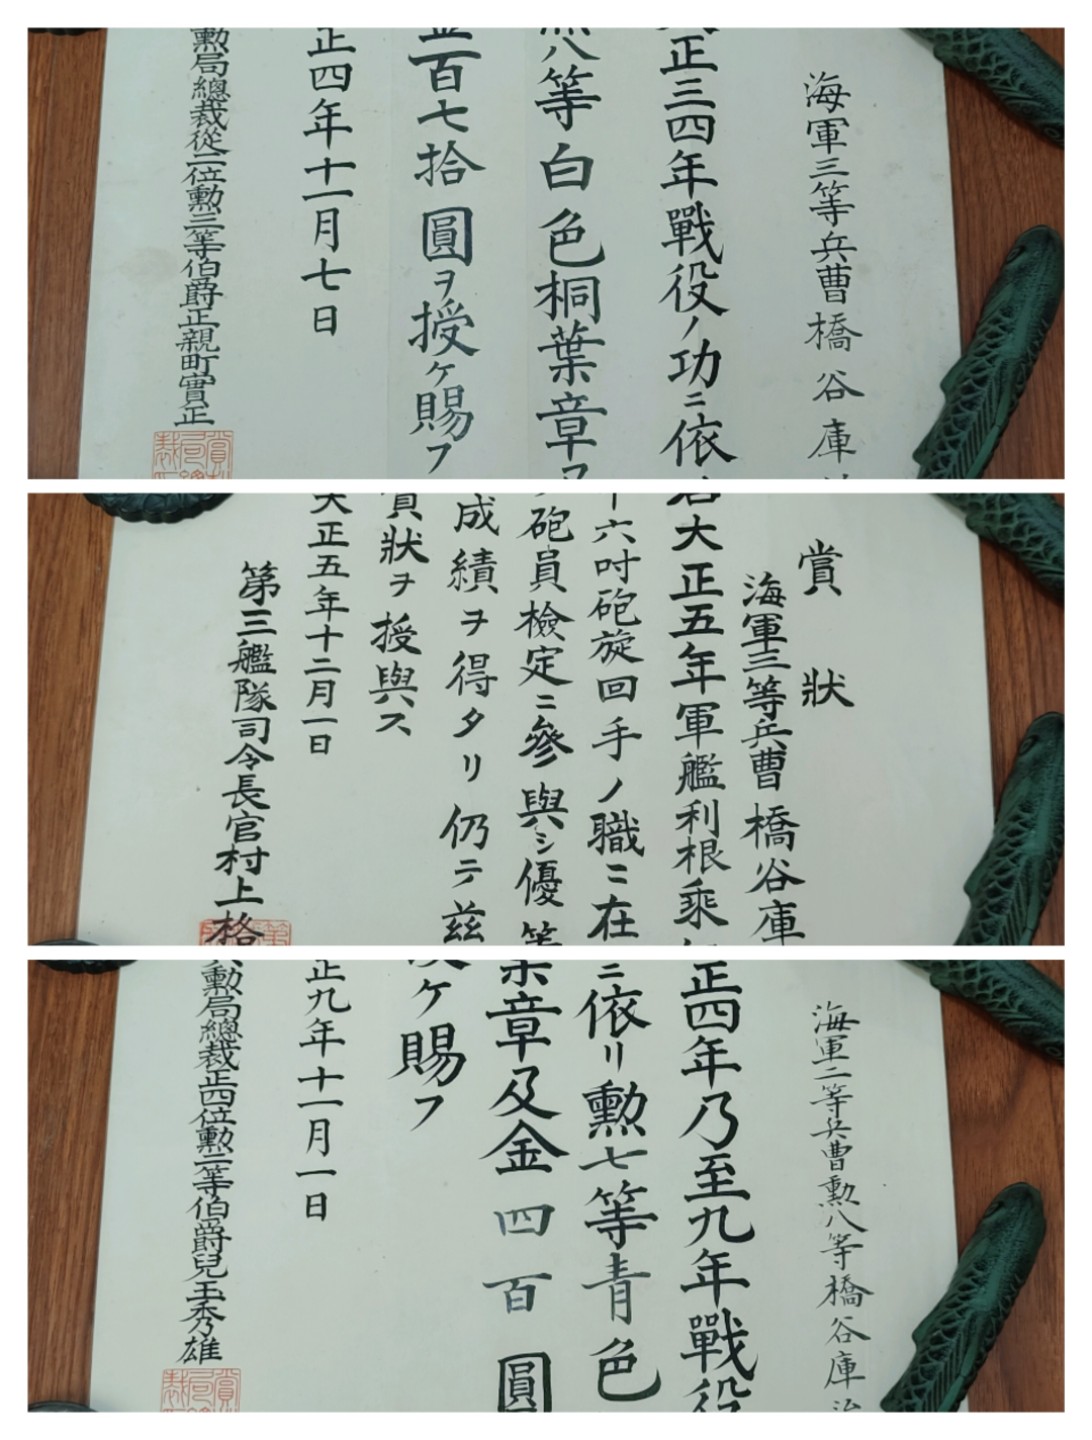 海軍三等兵曹橋谷庫
正三四年戰役ノ功ニ依
八等白色桐葉章
百七拾圓ヲ授ケ賜フ
正四年十一月七日
勲局總裁從二位勲三等伯爵正親町實正
賞狀
海軍三等兵曹橋谷庫
右大正五年軍艦利根乘
六吋砲旋回手ノ職ニ在
砲員檢定ニ參與シ優等
成績ヲ得タリ仍テ茲
賞狀ヲ授與ス
大正五年十二月一日
第三艦隊司令長官村上格
海軍二等兵曹勲八等橋谷庫治
正四年乃至九年戰役
ニ依リ勲七等青色
葉章及金四百圓
ケ賜フ
正九年十一月一日
勲局總裁正四位勲二等伯爵兒玉秀雄